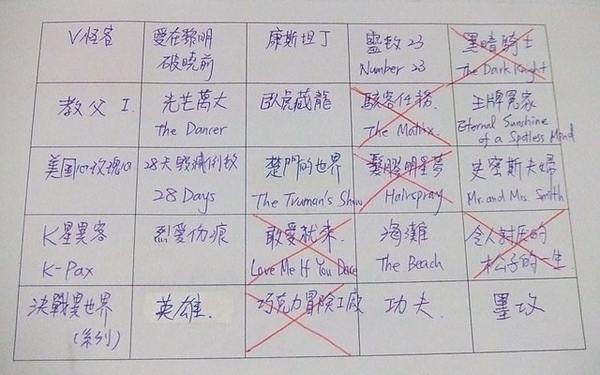 V怪客
愛在黎明
破曉前
康斯坦丁
靈數23
Number 23
黑暗騎士
The Dark Knight
教父 I.
光芒萬丈
the Dancer
臥虎藏龍
駭客任務
The Matrix.
王牌冤家
Eternal Sunshine
of a Spotless Mind
美国心玫瑰心
28天毀滅倒數
28 Days
楚門的世界
The Truman's Show
髮膠明星夢
Hairspray
史密斯夫婦
Mr. and Mrs. Smith
K星異客
K-Pax
烈愛傷痕
敢愛就來.
Love Me If You Dare
海灘
The Beach
令人討厭的
松子的一生
決戰異世界
(系列)
英雄.
巧克力冒險工廠
功夫.
墨攻